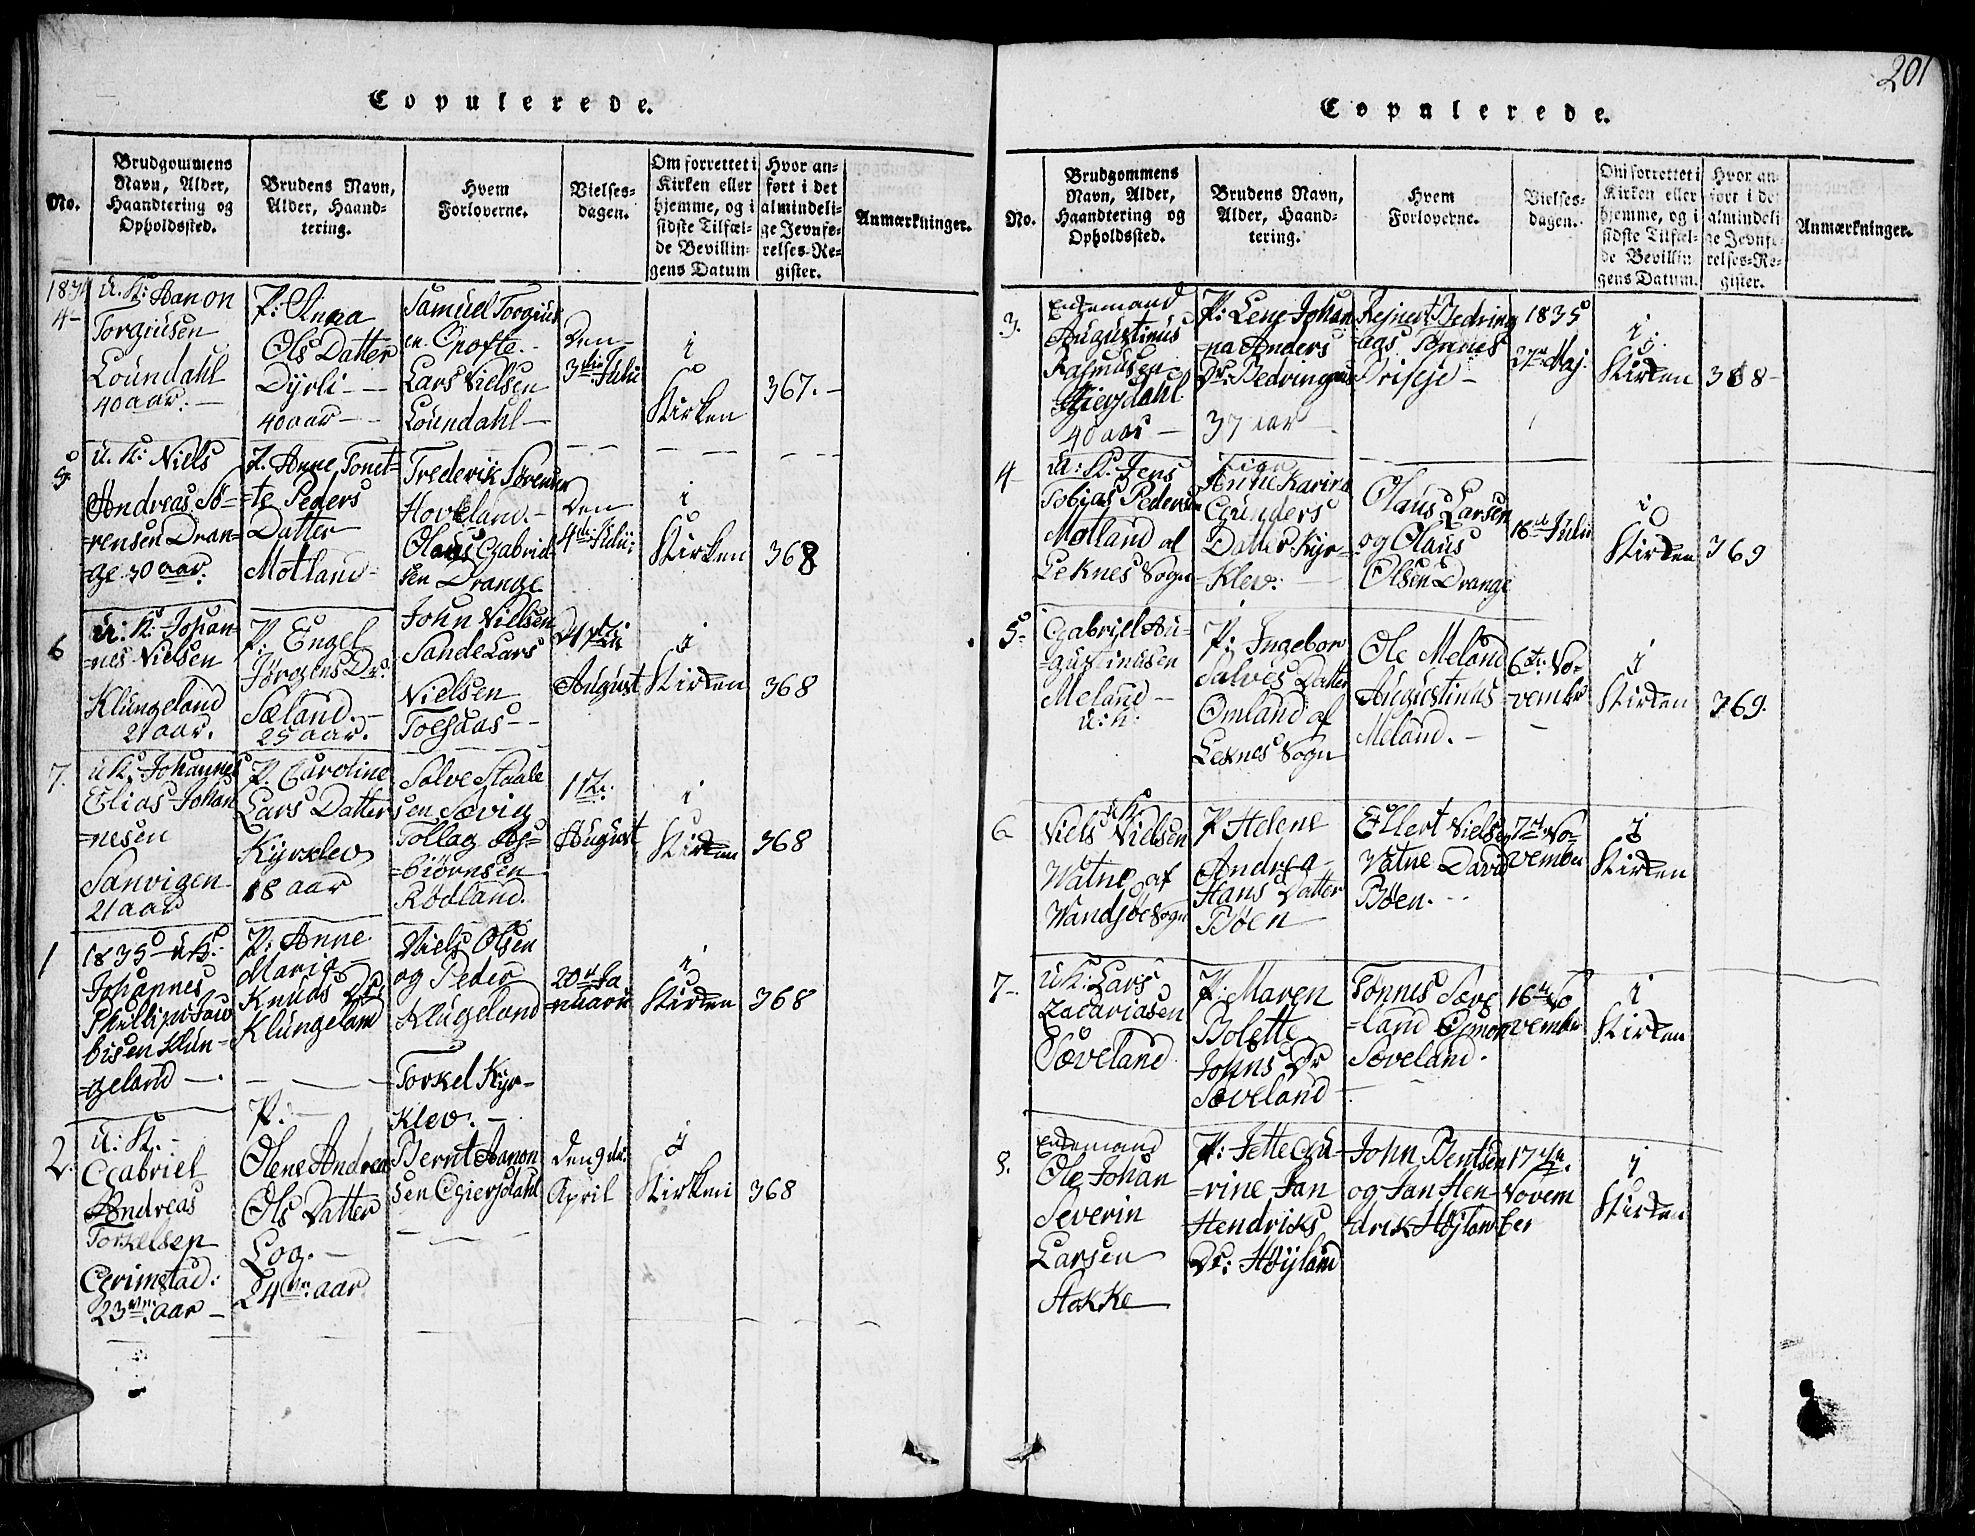 Copulerede.
No.
Brudgommens
Navn, Alder,
Haandtering og
Opholdssted.
Brudens Navn,
Alder, Haand-
tering.
Hvem
Forloverne.
Vielses-
dagen.
Om forrettet i
Kirken eller
hjemme, og i
sidste Tilfæl-
de Bevillin-
gens Datum
Hvor an-
ført i det
almindeli-
ge Jevnfø-
relses-Re-
gister.
Anmærkninger.
1834
4-
U. K: Aanon
Torgiusen
Loundahl
40 aar. -
P: Anna
Ols Datter
Dyrli -
40 aar -
Samuel Torgius
en
Lars Nielsen
Loundahl -
Den
3die Julii
i
Kirken
367. -
5
U. K: Niels
Andreas Sø-
rensen Dran-
ge 30 aar.
P. Anne Tonet-
te Peders
Datter
Motland -
Frederik Sørensen
Hovland. -
Olaus Gabriel-
sen Drange
Den
4de Julii
i
Kirken
368
6
U. K: Johan-
nes Nielsen
Klungeland
21 aar.
P: Engel
Jørgens Dr.
Sæland. -
25 aar.
John Nielsen
Sande Lars
Nielsen
August
i
Kirken
368
7.
U K. Johannes
Elias Johan
nesen
Sanvigen
21 aar
P. Caroline
Lars Datter
Kyrklev
18 aar
Salve Staale
sen Søvig
Tollag
biørnsen
Rødland.
11te
August
i
Kirken
368
1
1835 - U K:
Johannes
Phillip Jaco
bisen Klun-
geland -
P: Anne
Maria
Knuds Dr
Klungeland
Niels Olsen
og Peder
Klugeland
Torkel Kyr-
klev. -
20de Ja
nuarii
i
Kirken
368
2.
U: K. -
Gabriel
Andreas
Torkelsen
Grimstad:
23 aar -
P: -
Olene Andrea
Ols Datter
Log. -
24 aar
Bernt Aanon
sen Gjersdahl
Den 9de
April
i
Kirken
368
201
Copulerede.
No.
Brudgommens
Navn, Alder,
Haandtering og
Opholdssted.
Brudens Navn,
Alder, Haand-
tering.
Hvem
Forloverne.
Vielses-
dagen.
Om forrettet i
Kirken eller
hjemme, og i
sidste Tilfæl-
de Bevillin
gens Datum.
Hvor an-
ført i de
almindeli
ge Jevnfø-
relses-Re-
gister.
Anmærkninger.
3.
Enkemand
Augustinus
Rasmusen
Gjersdahl.
40 aar -
P: Lene Johan
na Anders
Dr. Bedringaas
37 aar
Rejnert Bedring
aas Tønnes
1835
27de Maj.
i
Kirken
368 -
4
U: K. Jens
Tobias Pedersen
Motland af
Leknes Sogn
Pigen
Anne Karine
Gunders
Datter Kyr-
klev: -
Olaus Larsen
og Olaus
Olsen Drange
16de Julii
i
Kirken
369
5.
Gabriel Au-
gustinusen
Meland -
U: K:
P: Ingebor
Salves Datter
Omland af
Leknes Sogn
Ole Meland
Augustinus
Meland. -
6te No-
vembr
i
Kirken
369.
6
UK
Niels Nielsen
Watne af
Wandsøe Sogn
P Helene
Andrea
Hans Datter
Bøen
Ellert Nielsen
Watne David
Bøen. -
7de No-
vember
i
Kirken
7-
U K: Lars
Zacariasen
Søveland
P. Maren
Bolette
Johns Dr
Søveland -
Tønnes Søve
land
Søveland.
16de No
vember
i
Kirken
8.
Enkemand
Ole Johan
Severin
Larsen
Stokke
P: Jette Ca
rine Jan
Hendriks
Dr: Høyland
John Bentsen
og Jan Hen
drik Høyland
17de
Novem
ber
i
Kirken